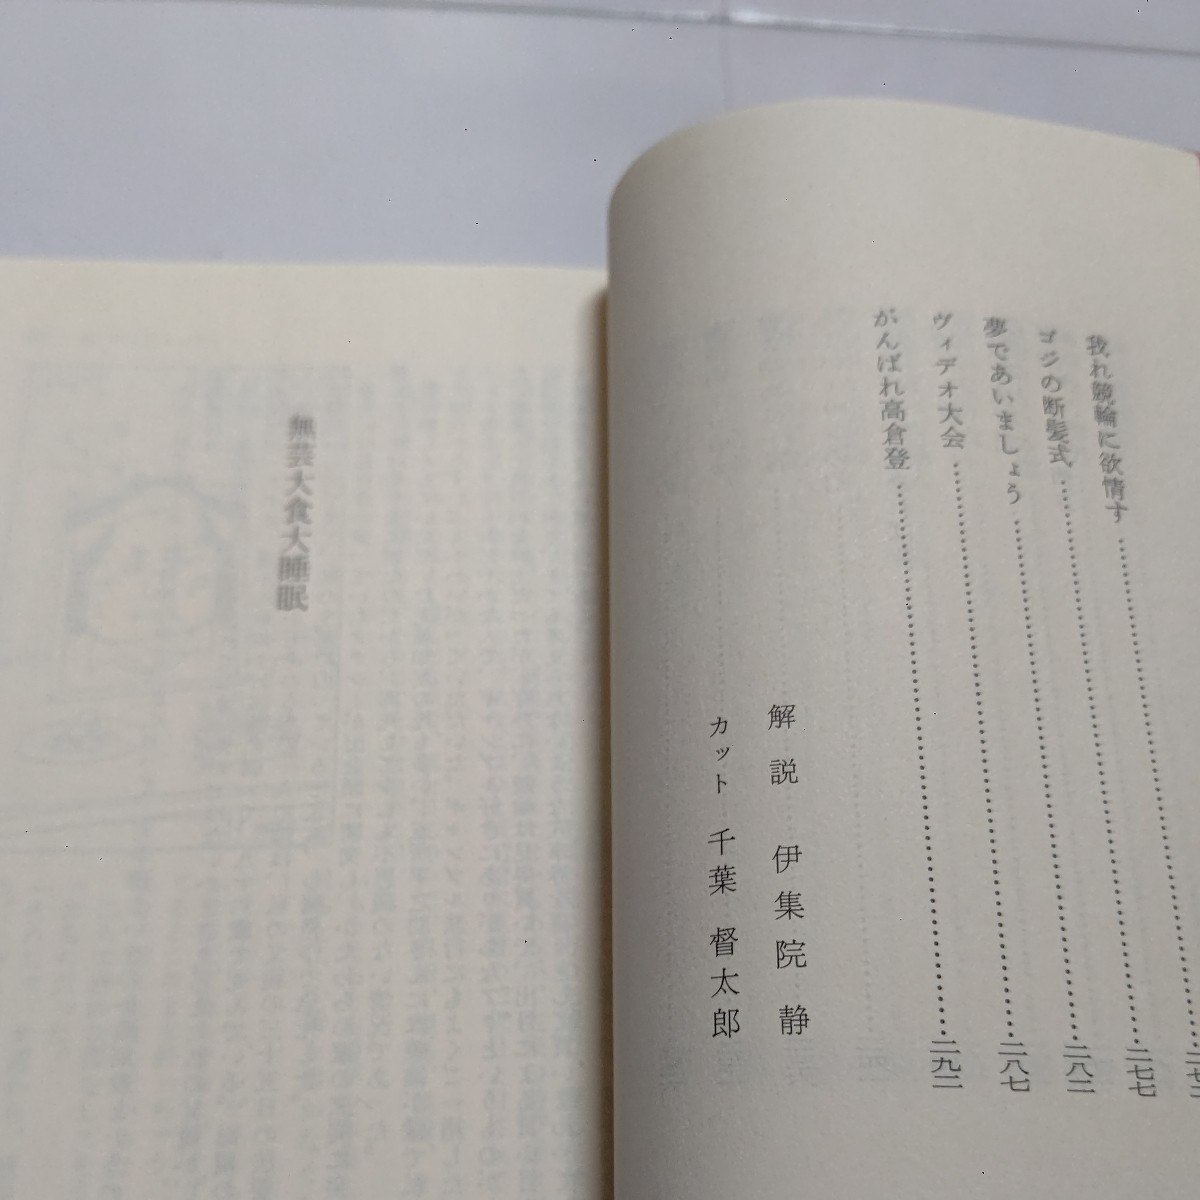 我れ競輪に欲情す……二七七
ゴジの断髪式……二八二
夢であいましょう……二八七
ヴィデオ大会……二九二
がんばれ高倉登
解説 伊集院静
カット 千葉督太郎
無芸大食大睡眠